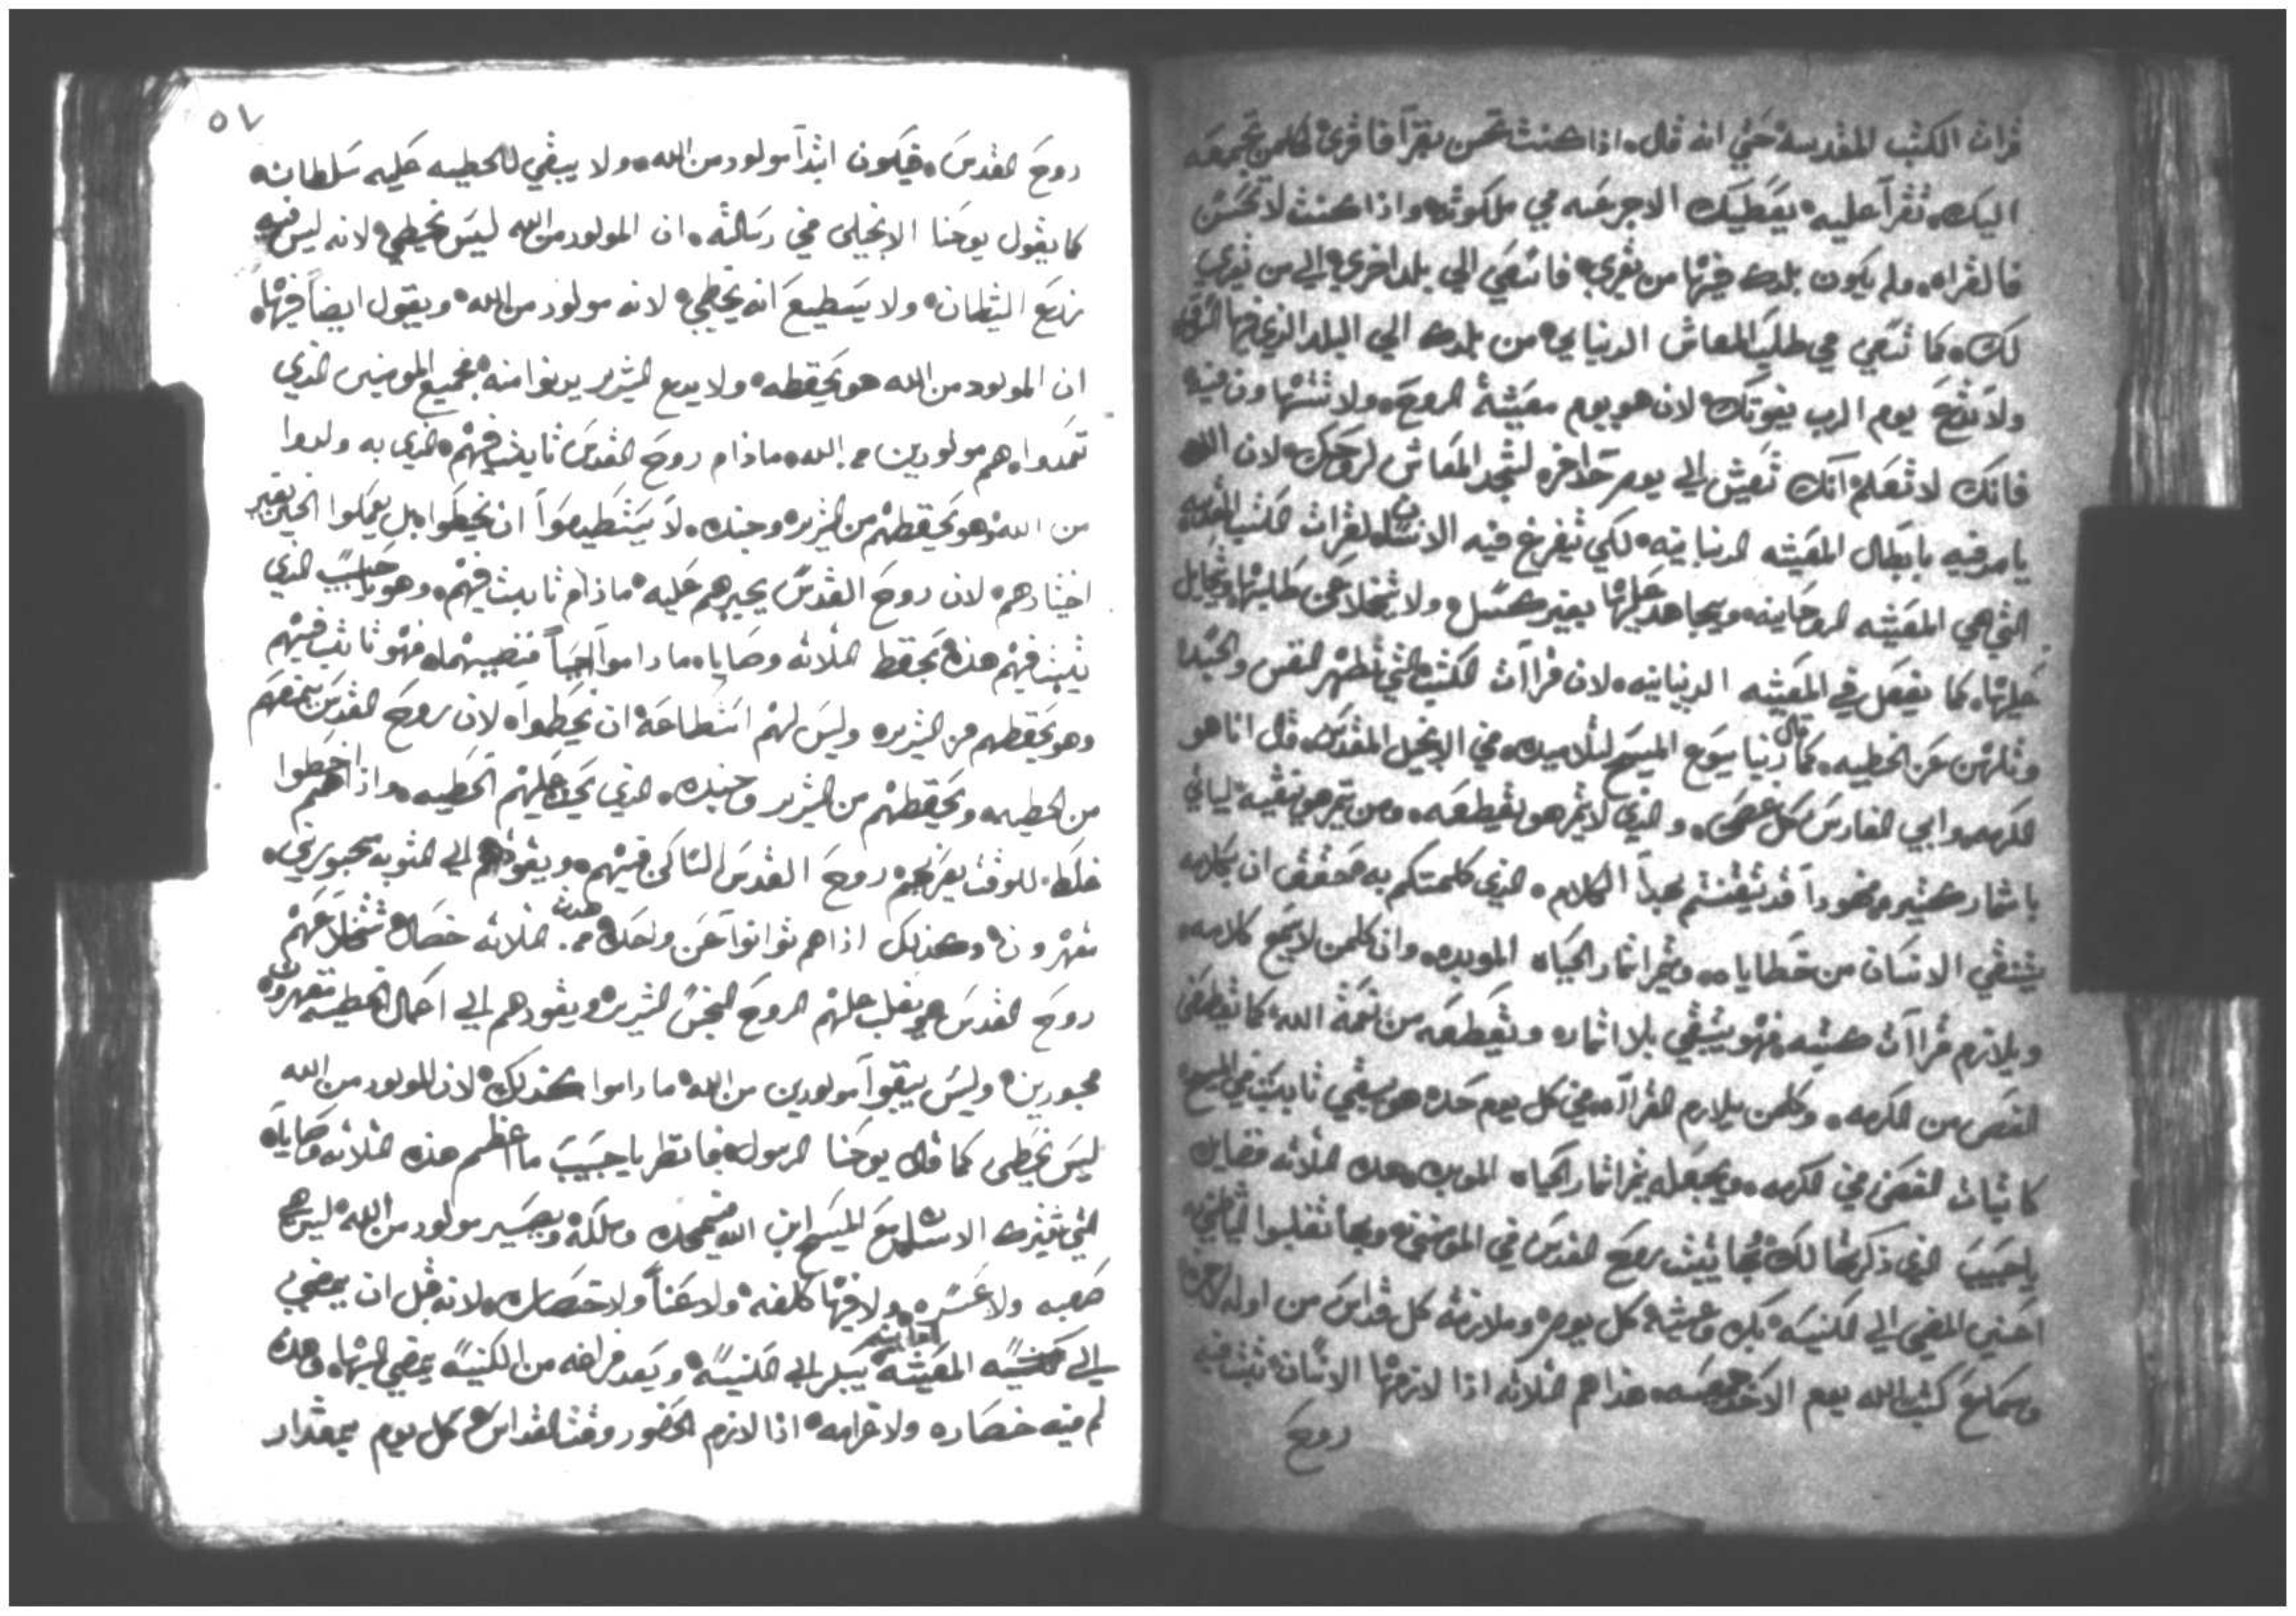 قرات الكتب المقدسة حتي انه قال اذا كنت تحسن تقرآ فاقري لكلمن تجمعه
اليك تقرآ عليه يعطيك الاجر عنه في ملكوته واذا كنت لا تحسن
فالقراه ولم يكون بلدك فيها من يقري فاتعي الي بلد اخري الي من يقري
لك كما تسعي في طلب المعاش الدنيايي من بلدك الي البلد الذي فيها
ولا تدع يوم الرب يفوتك لان هو يوم معيشة الروح ولا تتهاون فيه
فانك لا تعلم انك تعيش الي يوم حد اخر لتجد المعاش لروحك لان الله
يامر فيه بابطال المعيشه الدنيانيه لكي يتفرغ فيه الانسان لقرات الكتب المقدسه
التي هي المعيشه الروحانيه ويجاهد عليها بغير كسل ولا يتخلا عن طلبتها ويحايل
عليها كما يفعل في المعيشه الدنيانيه لان قراات الكتب التي تطهر النفس والجسد
وتلهن عن الخطيه كما قال ربنا يسوع المسيح لتلاميده في الانجيل المقدس قال انا هو
الكرمه وابي الغارس كل غصن والذي لا يثمر هو يقطعه ومن يثمر هو ينقيه لياتي
باثمار كثير وفخودا قد تيقنتم لهدا الكلام الذي كلمتكم به محقق ان بكلامه
يتنقي الانسان من خطاياه ويثمر اثمار الحياه الموبده وان كلمن لا يسمع كلامه
ويلازم قراات كتبه فهو يبقي بلا اثماره وتقطعه من نعمة الله كما يقطع
الغصن من الكرمه وكلمن يلازم القراآه في كل يوم حد هو يبقي ثابت في المسيح
كا ثبات الغصن في الكرمه ويجعله يثمر اثمار الحياه الموبده هده الثلاثه فضايل
يا حبيب الذي ذكرتها لك بها يثبت روح القدس في المومنين وبها تغلبوا الشياطين
اعني المضي الي الكنيسه بكره وعشيه كل يوم وملازمة كل قداس من اوله لاخره
وسماع كتب الله يوم الاحد وجمعه هذا هم الثلاثه اذا لازمها الانسان ثبت فيه
روح
٥٧
روح القدس فيكون ابدآ مولود من الله ولا يبقي للخطيه عليه سلطانه
كما يقول يوحنا الانجيلي في رسالته ان المولود من الله ليس يخطي لانه ليس فيه
زرع الشيطان ولا يستطيع انه يخطي لانه مولود من الله ويقول ايضا فيها
ان المولود من الله هو يحفظه ولا يدع الشرير يدنوا منه فجميع المومنين الذي
تعمدوا هم مولودين من الله ماذام روح القدس ثابت فيهم الذي به ولدوا
من الله وهو يحفظهم من الشرير وجنده لا يستطيعوا ان يخطوا بل يعملوا الخير بغير
اختيارهم لان روح القدس يجبرهم عليه ماذام ثابت فيهم وهو يا حبيب الذي
يثبت فيهم هذه بحفظ الثلاثه وصاياه ماداموا ناصبينهم فهو ثابت فيهم
وهو يحفظهم من الشرير وليس لهم استطاعة ان يخطوا لان روح القدس يمنعهم
من الخطيه ويحفظهم من الشرير وجنده الذي يحث عليهم الخطيه واذا هم اخطوا
غلط للوقت يفرعهم روح القدس الساكن فيهم ويقودهم الي التوبه مجبورين
مقهرون وكذلك اذا هم توانوا عن واحده من هدت الثلاثه خصال تتخلا عنهم
روح القدس ويغلب عليهم الروح النجس الشرير ويقودهم الي اعمال الخطيه مقهرون
مجبورين وليس يبقوا مولودين من الله ماداموا كذلك لان المولود من الله
ليس يخطي كما قال يوحنا الرسول فانظر يا حبيب ما اعظم هذه الثلاثه وصاياه
التي تثبت الانسان مع المسيح ابن الله في مجده وملكه ويصير مولود من الله ليس هي
صعبه ولا عسره ولا فيها كلفه ولا عنا ولا خصاره لانه قبل ان يمضي
الي المعيشة الفانيه يبكر الي الكنيسه وبعد فراغه من الكنيسه يمضي اليها وهذه
لم فيه خصاره ولا غرامه اذا لازم الحضور وقت القداس كل يوم بمقدار